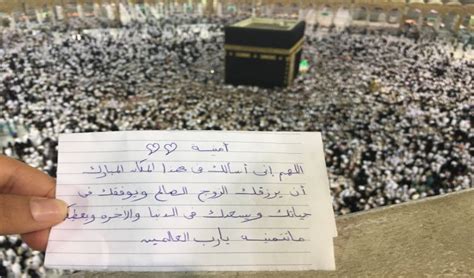 أمنية ♡♡
اللهم إني أسألك في هذا المكان المبارك
أن يرزقك الزوج الصالح ويوفقك في
حياتك ويسعدك في الدنيا والآخرة ويعطيك
ماتتمنيه يارب العالمين